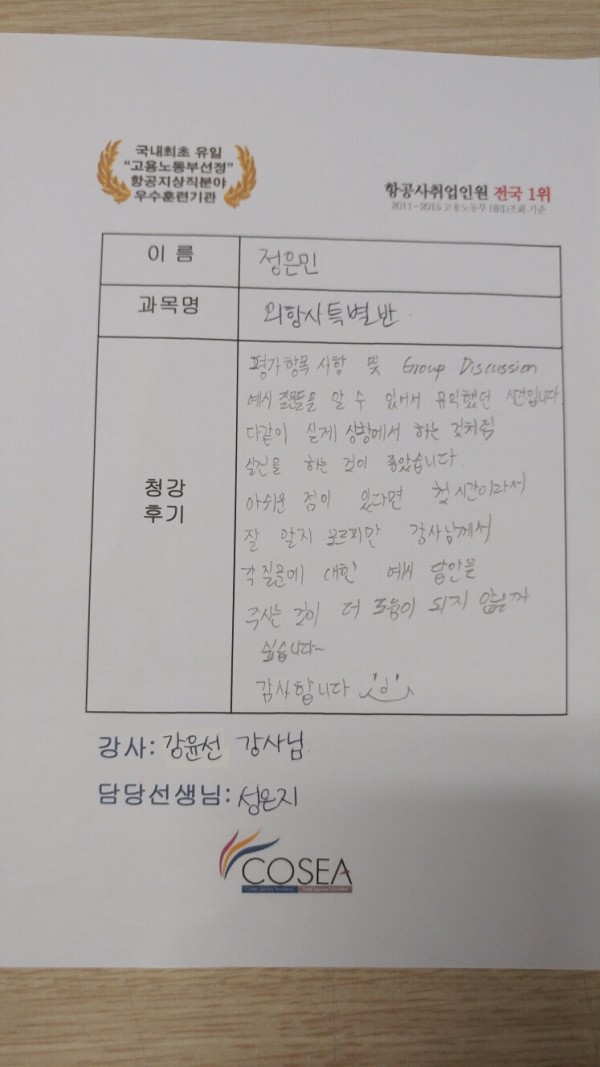 국내최초 유일
"고용노동부선정"
항공지상직분야
우수훈련기관
항공사취업인원 전국 1위
2011~2015 고용노동부 HRD조회 기준
이 름
정은민
과목명
외항사특별반.
청강
후기
평가항목 사항 및 Group Discussion
예시 질문들을 알 수 있어서 유익했던 시간입니다.
다같이 실제 상황에서 하는 것처럼
실전을 하는 것이 좋았습니다.
아쉬운 점이 있다면 첫시간이라서
잘 알지 모르지만 강사님께서
각 질문에 대한 예시 답안을
주시는 것이 더 도움이 되지 않을까
싶습니다~
감사합니다
강사: 강윤선 강사님.
담당선생님: 성은지
COSEA